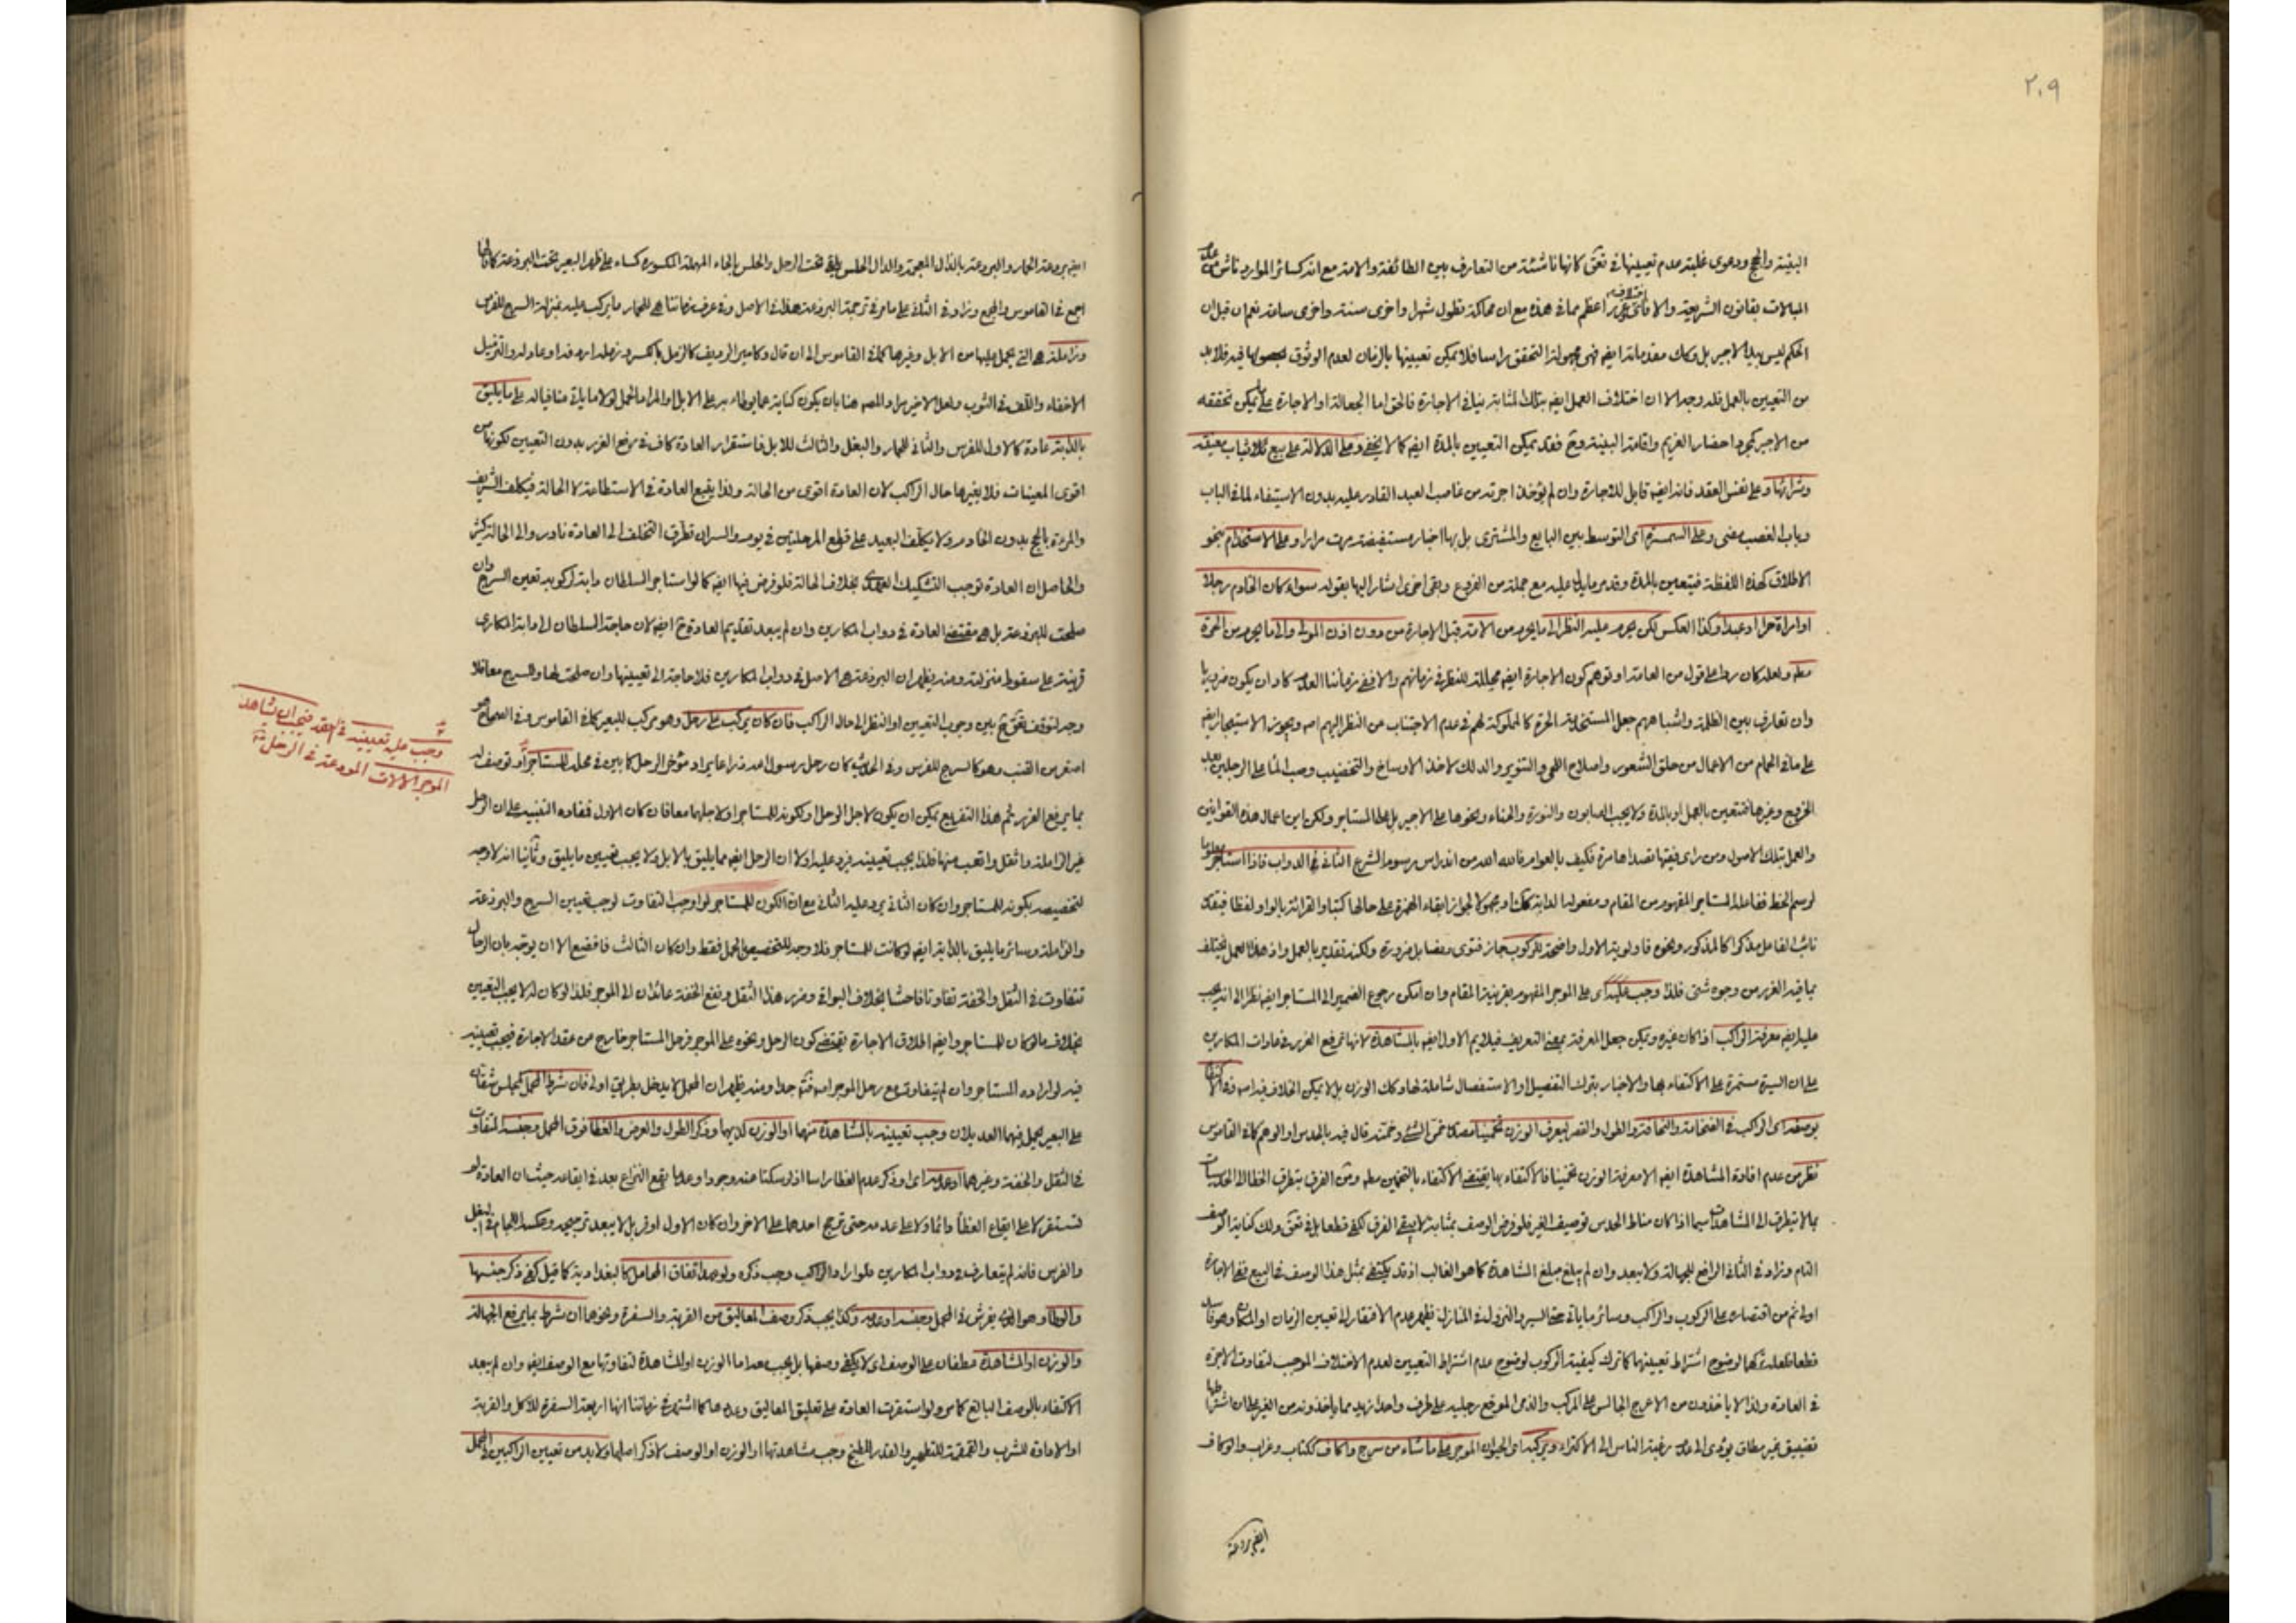 ٢٠٩
البينة والحج ودعوى غلبته عدم تعيينها في تعق كانها ناشئة من التعارف بين الطائفة والامة مع انه كسائر الموارد ناش من عدم
المبالات بقانون الشريعة والا فاى غرر اعظم مما في هذه مع ان محاكمة تطول شهرا واخرى سنة واخرى ساعة نعم ان قيل ان
الحكم ليس بيد الاجير بل وكك مقدماته ايض فهى مجهولة التحقق راسا فلا يمكن تعيينها بالزمان لعدم الوثوق بحصولها فيه فلا بد
من التعيين بالعمل فله وجه الا ان اختلاف العمل ايض بتلك المثابة ينافي الاجارة فالحق اما الجعالة او الاجارة على ما يمكن تحققه
من الاجير كمجرد احضار الغريم واقامة البينة وح فقد يمكن التعيين بالمدة ايض كما لا يخفى وعلى الدلالة على بيع ثياب معينة
وشرائها وعلى نفس العقد فانه ايض قابل للاجارة وان لم يؤخذ اجرته من غاصب العبد القادر عليه بدون الاستيفاء لما في الباب
وباب الغصب مضى وعلى السمسرة اى التوسط بين البايع والمشترى بل بها اخبار مستفيضة مرت مرارا وعلى الاستخدام بنحو
الاطلاق كهذه اللفظة فيتعين بالمدة وقد مر ما يدل عليه مع جملة من الفروع وبقى اخرى اشار اليها بقوله سواء كان الخادم رجلا
او امراة حرا او عبدا وكذا العكس لكن يحرم عليه النظر الى ما يحرم من الامة قبل الاجارة من دون اذن المولى والى ما يحرم من الحرة
مطه ولعله كان ردا على قول من العامة او توهم كون الاجارة ايض محللة للنظر في زمانهم والا ففى زماننا العدم كاد ان يكون ضروريا
وان تعارف بين الظلمة واشباههم جعل المستخدمة الحرة كالمملوكة لهم في عدم الاجتناب من النظر اليهم اه ويجوز الاستيجار ايض
على ما في الحمام من الاعمال من حلق الشعور واصلاح اللحى والتنوير والدلك لاخذ الاوساخ والتخضيب وصب الماء على الرجلين بعد
الخروج وغيرها فتتعين بالعمل او بالمدة ولا يجب الصابون والنورة والحناء ونحوها على الاجير بل على المستاجر ولكن اين اعمال هذه القوانين
والعمل بتلك الاصول ومن راى فقيها تصداها مرة فكيف بالعوام فالله الله من اندراس رسوم الشرع الثاني في الدواب فاذا استاجر معلوما
نائب الفاعل مذكرا كالمذكور ونحوه فاولوية الاول واضحة للركوب جاز فتوى ونصا بل ضرورة ولكنه تقدير بالعمل واذ هذا العمل يختلف
بما فيه الغرر من وجوه شتى فلذا وجب عليه اى على الموجر المفهوم بقرينة المقام وان امكن رجوع الضمير الى المستاجر ايض نظرا الى انه يجب
عليه ايض معرفة الراكب اذا كان غيره ويمكن جعل المعرفة بمعنى التعريف فيلايم الاول ايض بالمشاهدة لانها ترفع الغرر في عادات المكارين
على ان السيرة مستمرة على الاكتفاء بها والاخبار بترك التفصيل او الاستفصال شاملة لها وكك الوزن بل لا يمكن الخلاف فيه اه وفي الاكتفاء
بوصفه اى الراكب في الضخامة والنحافة والطول والقصر ليعرف الوزن تخمينا مصدر خمن الشئ وخمنه قال فيه بالحدس او الوهم كما في القاموس
نظر من عدم افادة المشاهدة ايض الا معرفة الوزن تخمينا فالاكتفاء بها يقتضى الاكتفاء بالتخمين مطه ومن الفرق بتطرق الخطا الى الحدسيات
بما لا يتطرق الى المشاهدات سيما اذا كان مناط الحدس توصيف الغير فلو فرض الوصف بمثابة لا يبقى الفرق كفى قطعا بل في تعق وذلك كناية الوصف
التام وزاد في الثاني الرافع للجهالة ولا يبعد وان لم يبلغ مبلغ المشاهدة كما هو الغالب اذ قد يكتفى بمثل هذا الوصف في البيع ففى الاجارة
اولى ثم من اقتصاره على الركوب والراكب وسائر ما ياتى حتى السير والنزول في المنازل يظهر عدم الافتقار الى تعيين الزمان او المكان وهو فاسد
قطعا فلعله تركهما لوضوح اشتراط تعيينهما كما ترك كيفية الركوب لوضوح عدم اشتراط التعيين لعدم الاختلاف الموجب لتفاوت الاجرة
في العادة ولذا لا ياخذون من الاعرج الجالس على المركب والذمى الموقع رجليه على طرف واحد ازيد مما ياخذونه من الغير على ان اشتراطها
تضييق غير مطاق يؤدى الى عدم رغبة الناس الى الاكتراء ويركبه اى الحيوان الموجر على ما شاء من سرج واكاف ككتاب وغراب والوكاف
ايض بردعة
ايض بردعة الحمار والبردعة بالذال المعجمة والدال الحلس يلقى تحت الرحل والحلس بالحاء المهملة المكسورة كساء على ظهر البعير تحت البردعة كما فيها
اجمع في القاموس والمجمع وزاد في الثاني على ما مر في ترجمة البردعة هذا في الاصل وفي عرف زماننا هي للحمار ما يركب عليه بمنزلة السرج للفرس
وزاملة هي التي يحمل عليها من الابل وغيرها كما في القاموس الى ان قال وكامير الرديف كالزمل بالكسر وزمله اردفه او عادله والتزميل
الاخفاء واللف في الثوب ولعل الاخير مراد المصه هنا بان يكون كناية عما يوطاء به على الابل والمراد ما تحمل لولا ما ياتى منافيا له على ما يليق
بالدابة عادة كالاول للفرس والثاني للحمار والبغل والثالث للابل فاستقرار العادة كاف في رفع الغرر بدون التعيين لكونها من
اقوى المعينات فلا يغيرها حال الراكب لان العادة اقوى من الحالة ولذا يتبع العادة في الاستطاعة لا الحالة فيكلف الشريف
والمرءة بالحج بدون الخادم ولا يكلف البعيد على قطع المرحلتين في يوم والسر ان تطرق التخلف الى العادة نادر والى الحالة كثير
والحاصل ان العادة توجب التشكيك العمدى بخلاف الحالة فلو فرض فيها ايض كما لو استاجر السلطان دابة لركوبه تعين السرج وان
صلحت للبردعة بل هي مقتضى العادة في دواب المكارين وان لم يبعد تقديم العادة ح ايض لان حاجة السلطان الى دابة المكارى
قرينة على سقوط منزلته ومنه يظهر ان البردعة هي الاصل في دواب المكارين فلا حاجة الى تعيينها وان صلحت لها وللسرج معا فلا
وجه لتوقف تعق ح بين وجوب التعيين او النظر الى حال الراكب فان كان يركب على رحل وهو مركب للبعير كما في القاموس وفي الصحاح هو
اصغر من القتب وهو كالسرج للفرس وفي الحديث كان رحل رسول الله ذراعا اى مؤخر الرحل كما بين في محله للمستاجر او توصف له
بما يرفع الغرر ثم هذا التفريع يمكن ان يكون لاجل الرحل او لكونه للمستاجر او لاجلهما معا فان كان الاول فمفاده التنبيه على ان الرحل
غير الزاملة واثقل واتعب منها فلذا يجب تعيينه فيرد عليه اولا ان الرحل ايض مما يليق بالابل ولا يجب تعيين ما يليق وثانيا انه لا وجه
لتخصيصه بكونه للمستاجر وان كان الثاني يرد عليه الثاني مع ان الكون للمستاجر لو اوجب التفاوت لوجب تعيين السرج والبردعة
والزاملة وسائر ما يليق بالدابة ايض لو كانت للمستاجر فلا وجه للتخصيص بالحمل فقط وان كان الثالث فافضع الا ان يوجه بان الرحال
تتفاوت في الثقل والخفة تفاوتا فاحشا بخلاف البواقى وضرر هذا الثقل ونفع الخفة عائدان الى الموجر فلذا لو كان له لا يجب التعيين
بخلاف ما لو كان للمستاجر وايض اطلاق الاجارة يقتضى كون الرحل ونحوه على الموجر فرحل المستاجر خارج من عقد الاجارة فيجب تعيينه
فيه لو اراده المستاجر وان لم يتفاوت مع رحل الموجر اه فتدبر جدا ومنه يظهر ان المحمل لا يدخل بطريق اولى فان شرط المحمل كمجلس شقان
على البعير يحمل فيهما العديلان وجب تعيينه بالمشاهدة منهما او الوزن لديهما وذكر الطول والعرض والغطا فوق المحمل وجنسه لتفاوت
في الثقل والخفة وغيرهما او عدمه اى او ذكر عدم الغطا راسا اذ لو سكتا عنه وجودا وعدما يقع النزاع بعد في ايقاعه حيث ان العادة لم
تستقر لا على ايقاع الغطا دائما ولا على عدمه حتى يرجح احدهما على الاخر وان كان الاول اوفر بل لا يبعد ترجيحه وعكسه اللجام في البغل
والفرس فانه لم يتعارف في دواب المكارين فلو اراد الراكب وجب ذكره ولو صدا تفاق المحامل كالبغدادية كما قيل كفى ذكر جنسها
والوطا وهو الذى يفرش في المحمل وجنسه او عدمه وكذا يجب ذكر وصف المعاليق من القربة والسفرة ونحوهما ان شرط بما يرفع الجهالة
والوزن او المشاهدة عطفان على الوصف اى لا يكفى وصفها بل يجب معه اما الوزن او المشاهدة لتفاوتها مع الوصف ايض وان لم يبعد
الاكتفاء بالوصف البالغ كما مر ولو استقرت العادة على تعليق المعاليق وعدمها كما اشتهر في زماننا انها اربعة السفرة للاكل والقربة
او الاداوة للشرب والقمقمة للتطهير والقدر للطبخ وجب مشاهدتها او الوزن او الوصف لا ذكر اصلها ولا بد من تعيين الراكبين في المحمل
وجب عليه تعيينه في العقد فيجب ان يشاهد
الموجر الالات المودعة في الرحل